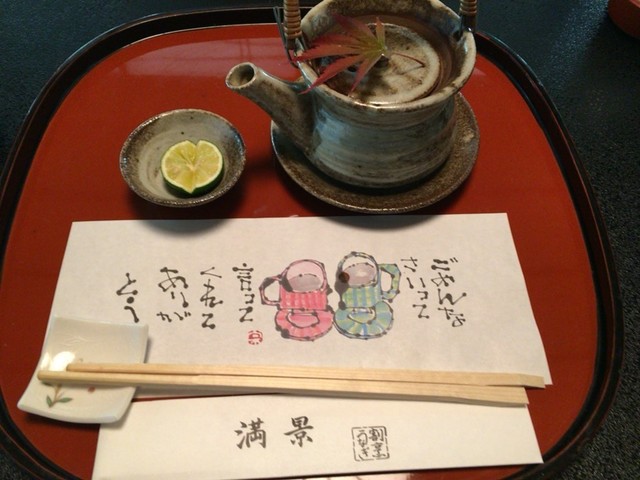 ごめんな
さいって
言って
くれて
ありが
とう
満景
割烹
うなぎ